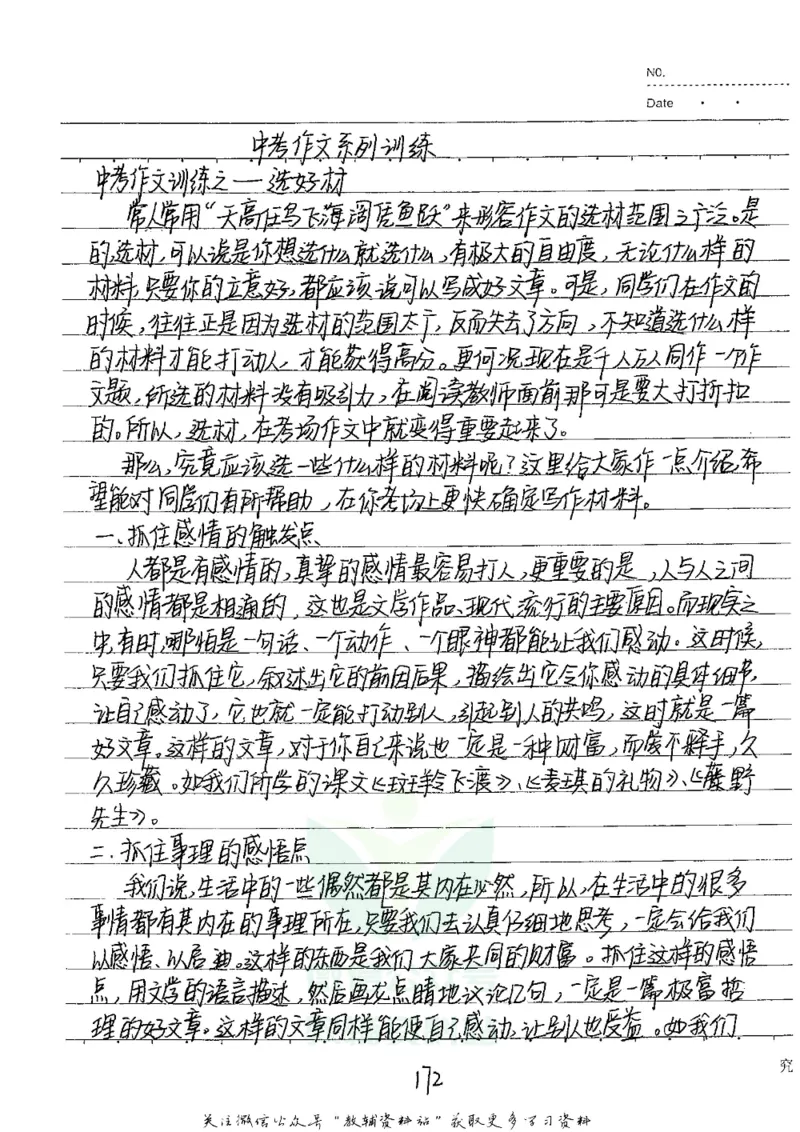 NO.
Date
中考作文系列训练
中考作文训练之一——选好材
常人常用“天高任鸟飞海阔凭鱼跃”来形容作文的选材范围之广泛。是
的,选材,可以说是你想选什么就选什么,有极大的自由度,无论什么样的
材料,只要你的立意好,都应该说可以写成好文章。可是,同学们在作文的
时候,往往正是因为选材的范围太广,反而失去了方向,不知道选什么样
的材料才能打动人,才能获得高分。更何况现在是千人万人同作一个作
文题,所选的材料没有吸引力,在阅读教师面前那可是要大打折扣
的。所以,选材,在考场作文中就变得重要起来了。
那么,究竟应该选一些什么样的材料呢?这里给大家作一点介绍,希
望能对同学们有所帮助,在你考场上更快确定写作材料。
一、抓住感情的触发点
人都是有感情的,真挚的感情最容易打人,更重要的是,人与人之间
的感情都是相通的,这也是文学作品、现代流行的主要原因。而现实之
中,有时,哪怕是一句话、一个动作、一个眼神都能让我们感动。这时候,
只要我们抓住它,叙述出它的前因后果,描绘出它令你感动的具体细节,
让自己感动了,它也就一定能打动别人,引起别人的共鸣,这时就是一篇
好文章。这样的文章,对于你自己来说也一定是一种财富,而爱不释手,久
久珍藏。如我们所学的课文《斑羚飞渡》、《麦琪的礼物》、《藤野
先生》。
二、抓住事理的感悟点
我们说,生活中的一些偶然都是其内在必然,所以,在生活中的很多
事情都有其内在的事理所在,只要我们去认真仔细地思考,一定会给我们
以感悟、以启迪。这样的东西是我们大家共同的财富。抓住这样的感悟
点,用文学的语言描述,然后画龙点睛地议论几句,一定是一篇极富哲
理的好文章。这样的文章同样能使自己感动、让别人也受益。如我们
究
172
关注微信公众号“教辅资料站”获取更多学习资料